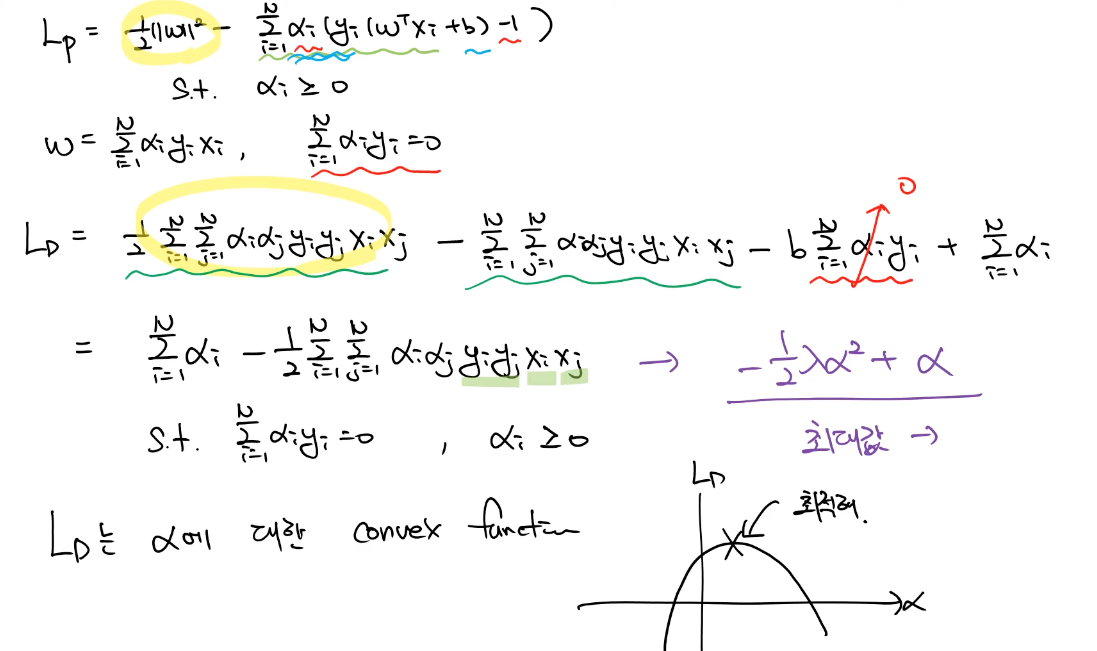 Lp = ½||w||² − Σ_{i=1}^{N} αi (yi (wᵀxi + b) −1 )
s.t. αi ≥ 0
w = Σ_{i=1}^{N} αi yi xi , Σ_{i=1}^{N} αi yi = 0
0
L_D = ½ Σ_{i=1}^{N} Σ_{j=1}^{N} αi αj yi yj xi xj − Σ_{i=1}^{N} Σ_{j=1}^{N} αi αj yi yj xi xj − b Σ_{i=1}^{N} αi yi + Σ_{i=1}^{N} αi
= Σ_{i=1}^{N} αi − ½ Σ_{i=1}^{N} Σ_{j=1}^{N} αi αj yi yj xi xj → −½λα² + α
s.t. Σ_{i=1}^{N} αi yi = 0 , αi ≥ 0 최대값 →
L_D
최적해.
L_D는 α에 대한 convex function
α